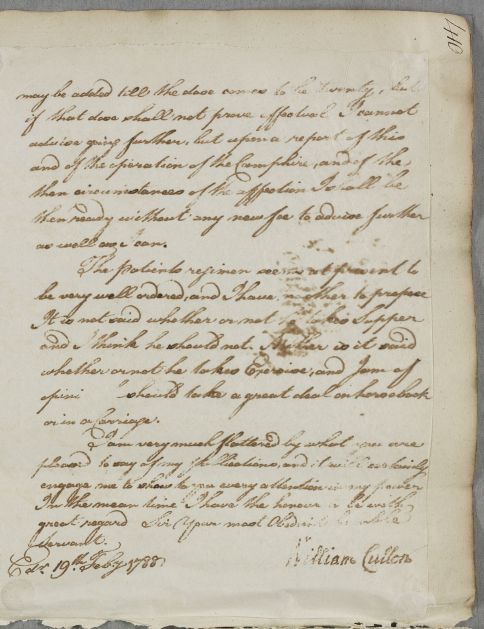 740
may be added till the dose comes to be twenty, but
if that dose shall not prove effectual I cannot
advise going further, but upon a report of this
and of the operation of the Camphire, and of the
then circumstances of the affection I shall be
then ready without any new fee to advise further
as well as I can.
The Patients regimen seems at present to
be very well ordered, and I have no other to propose
It is not said whether or not he takes Supper
and I think he should not. Neither is it said
whether or not he takes Exercise, and I am of
opini should take a great deal on horseback
or in a Carriage.
I am very much flattered by what you are
pleased to say of my Publications, and it will certainly
engage me to show to you every attention in my power
In the mean time I have the honour to be with
great regard Sir Your most Obedient humble
Servant.
William Cullen
Edr. 19th. Feby 1788